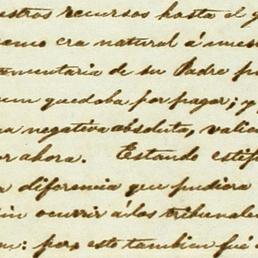 estros recursos hasta el g
como era natural á nues
amentaria de su Padre po
aun quedaba por pagar; y
na negativa absoluta, valie
or ahora. Estando estip
a diferencia que pudiera
ocurrir á los tribunale
: pero este tambien fué